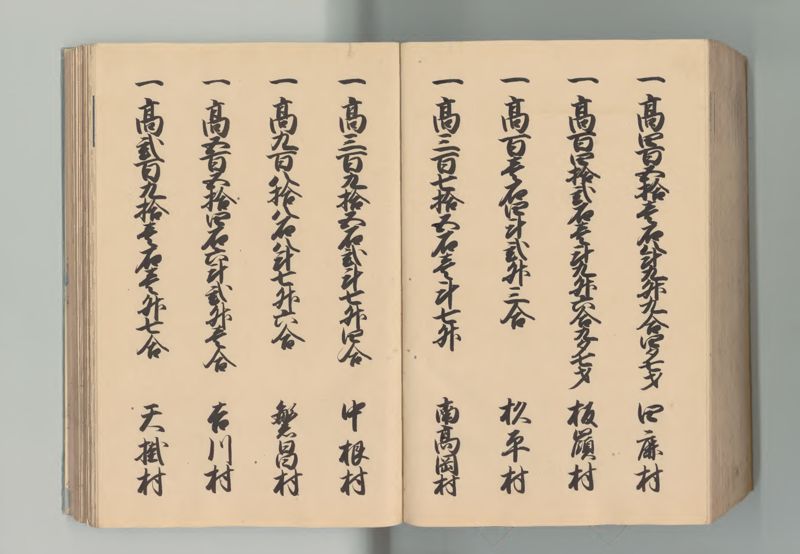 一 高四百五拾壱石八斗九升九合四夕七才 四鹿村
一 高百四拾弐石壱斗九升六合夕七才 板嶺村
一 高百壱石四斗弐升三合 松平村
一 高三百七拾五石壱斗七升 南高岡村
一 高三百九拾五石弐斗七升四合 中根村
一 高九百八拾八石八斗七升六合 繁昌村
一 高五百五拾四石六斗弐升壱合 吉川村
一 高弐百九拾壱石壱升七合 天掛村